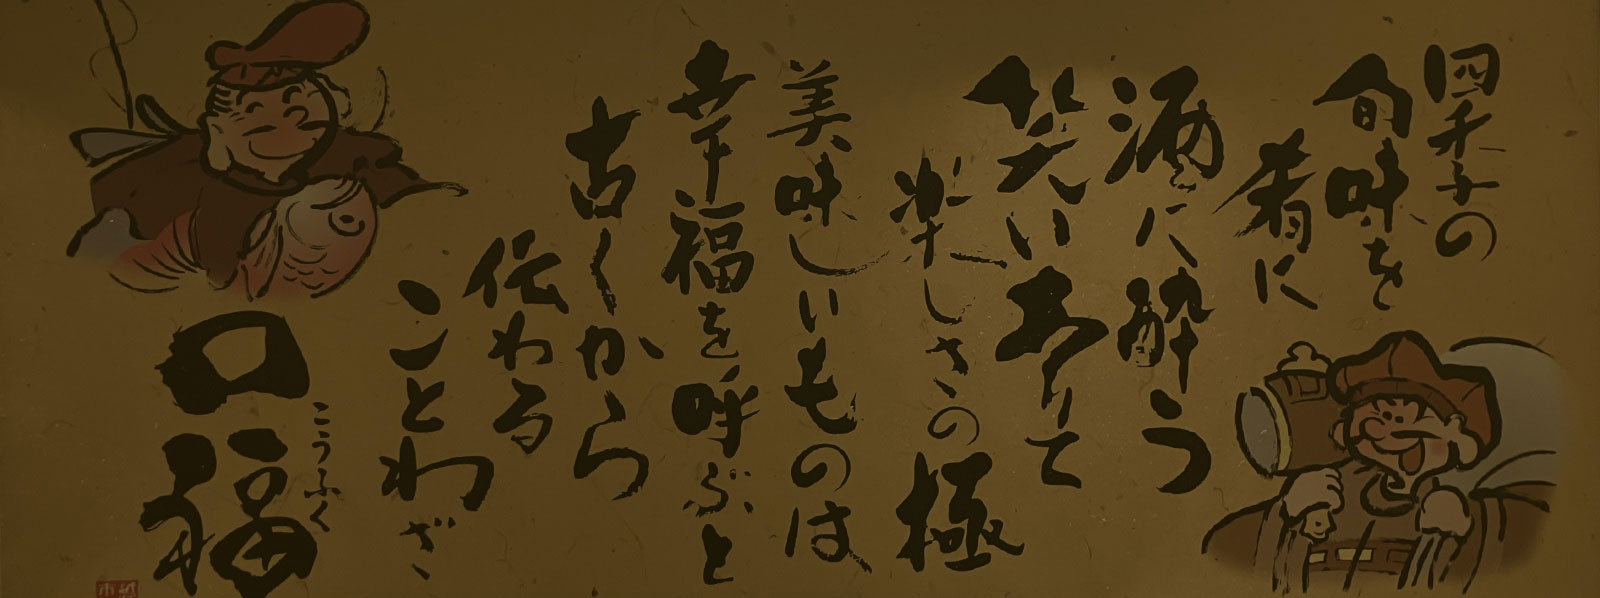 四季の
旬味を
肴に
酒に酔う
笑いありて
楽しさの
極
美味しいものは
幸福を呼ぶと
古くから
伝わる
ことわざ
口福
こうふく